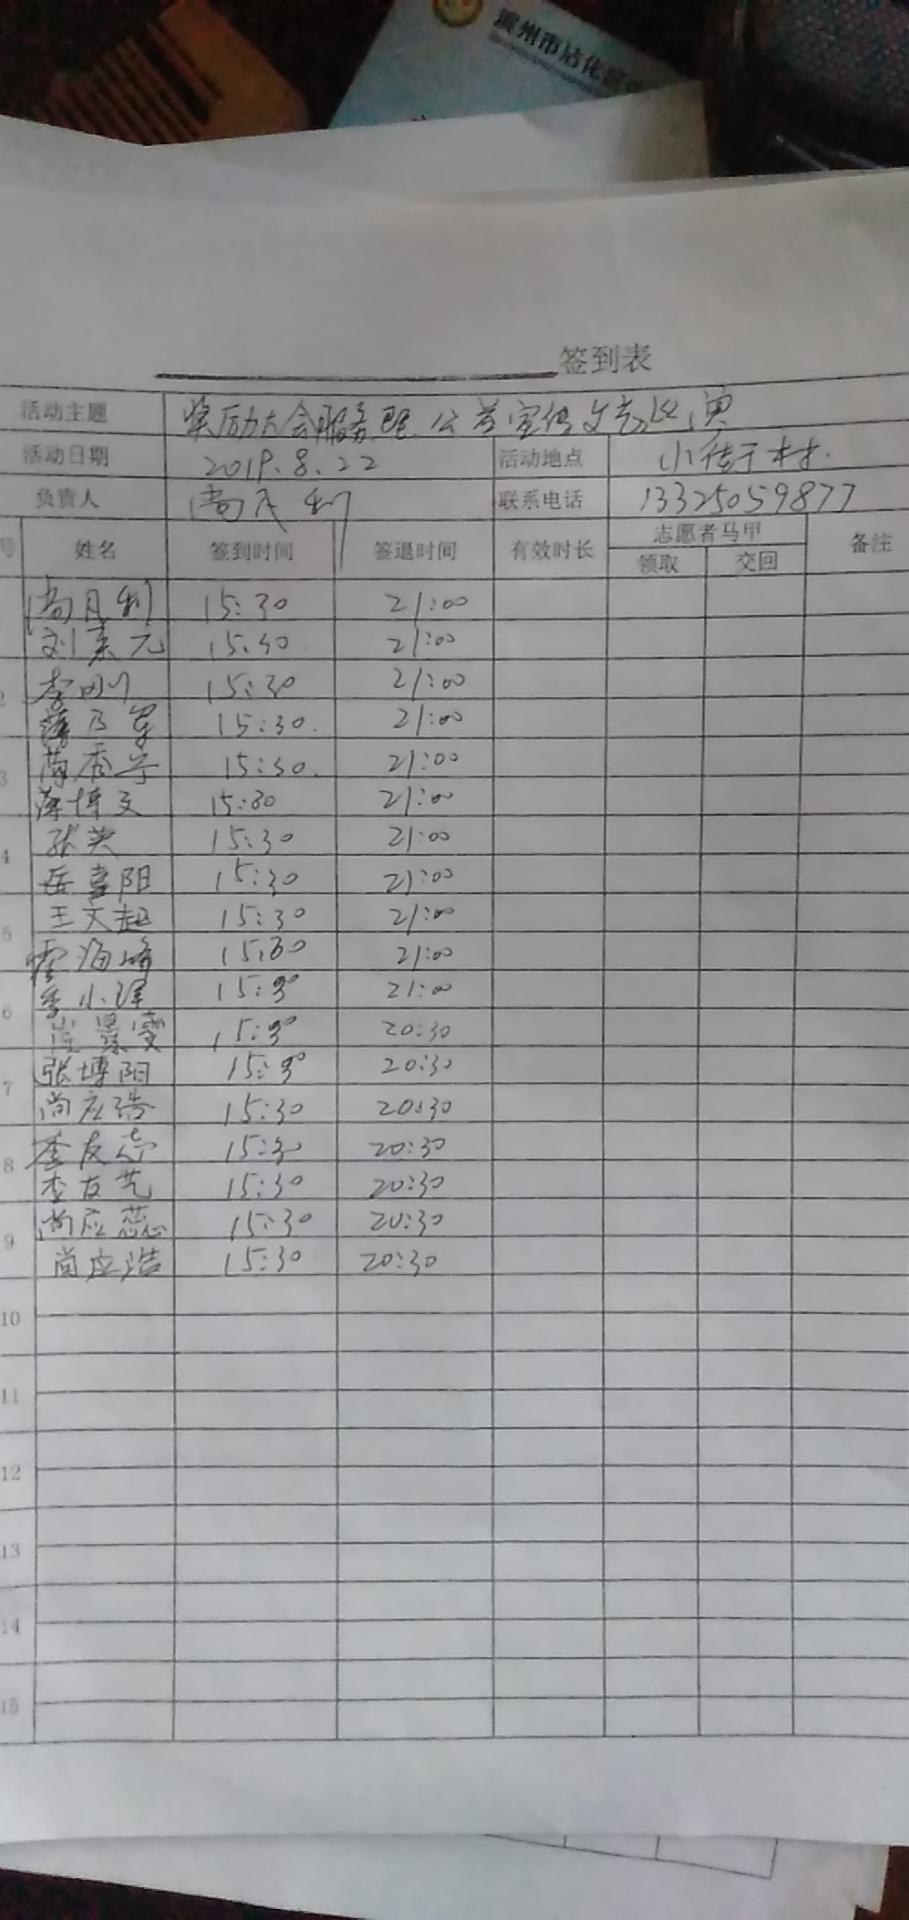 滨州市沾化区
签到表
活动主题 奖励大会服务暨公益宣传文艺汇演
活动日期 2019.8.22 活动地点 小 村
负责人 尚月利 联系电话 13325059877
号 姓名 签到时间 签退时间 有效时长 志愿者马甲 备注
领取 交回
尚月利 15:30 21:00
刘 元 15:30 21:00
2 李刚 15:30 21:00
薄乃军 15:30. 21:00
3 香 15:30. 21:00
薄博文 15:30 21:00
4 张英 15:30 21:00
岳喜阳 15:30 21:00
5 王文超 15:30 21:00
霍海峰 15:30 21:00
6 李小泽 15:30 21:00
景雯 15:30 20:30
7 张博阳 15:30 20:30
尚应浩 15:30 20:30
8 李友志 15:30 20:30
李友艺 15:30 20:30
9 尚应蕊 15:30 20:30
尚应浩 15:30 20:30
10
11
12
13
14
15